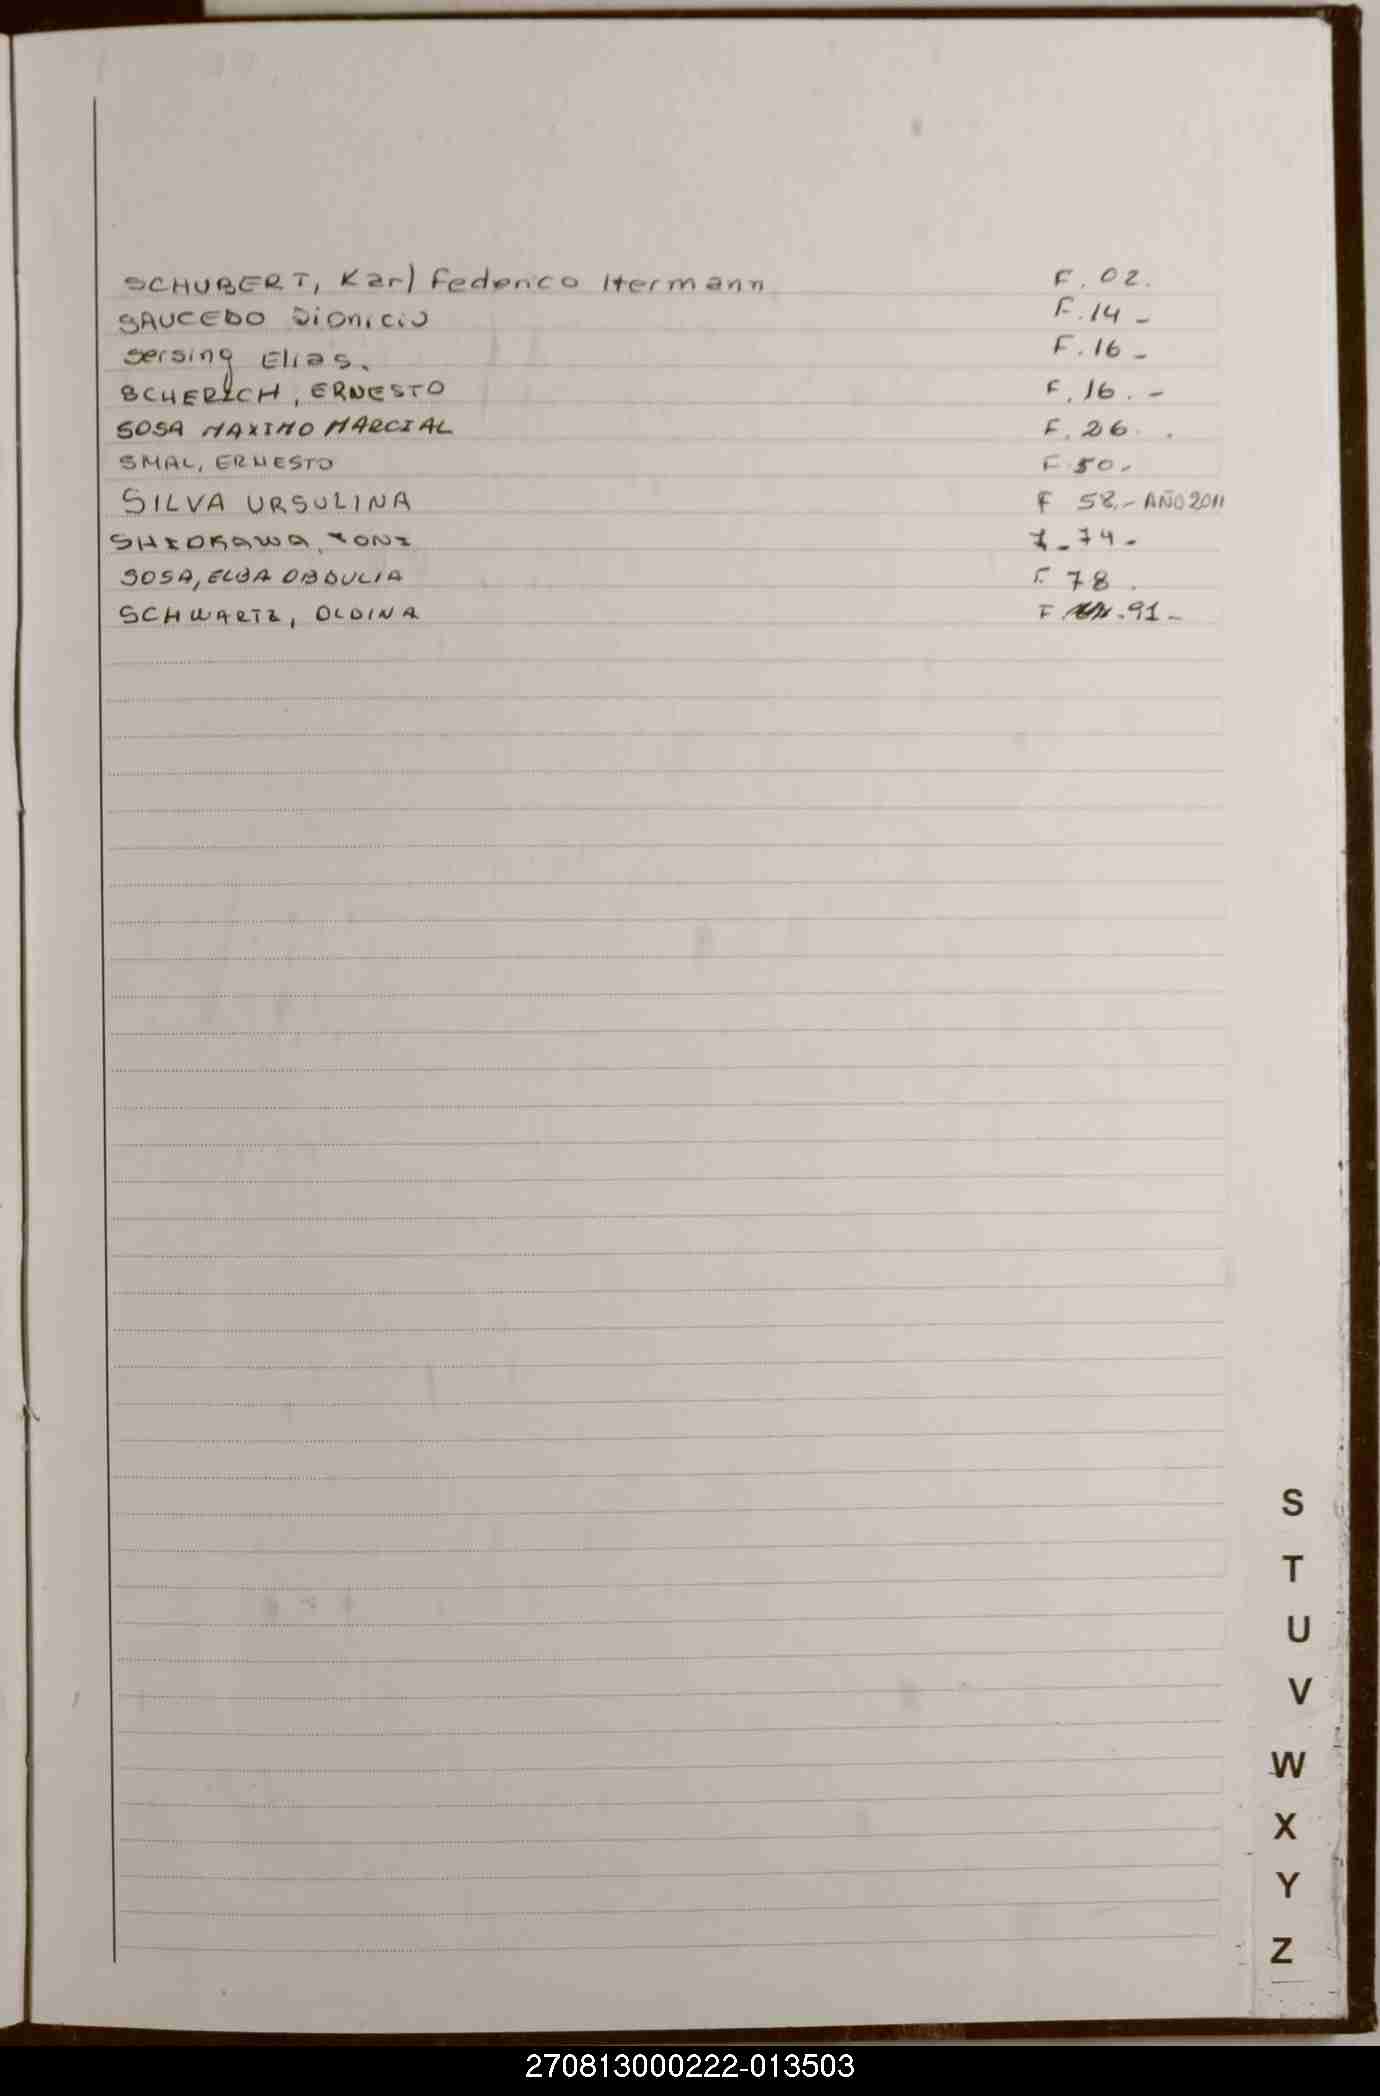 SCHUBERT, Karl Federico Hermann F. 02.
SAUCEDO Dionicio F. 14 -
Sersing Elias. F. 16 -
SCHERICH, ERNESTO F. 16. -
SOSA MAXIMO MARCIAL F. 26.
SMAL, ERNESTO F 50.-
SILVA URSULINA F 58.- AÑO 2011
SHIOKAWA, F-74-
SOSA, ELBA OBDULIA F. 78.
SCHWARTZ, OLDINA F. 91-
S
T
U
V
W
X
Y
Z
270813000222-013503